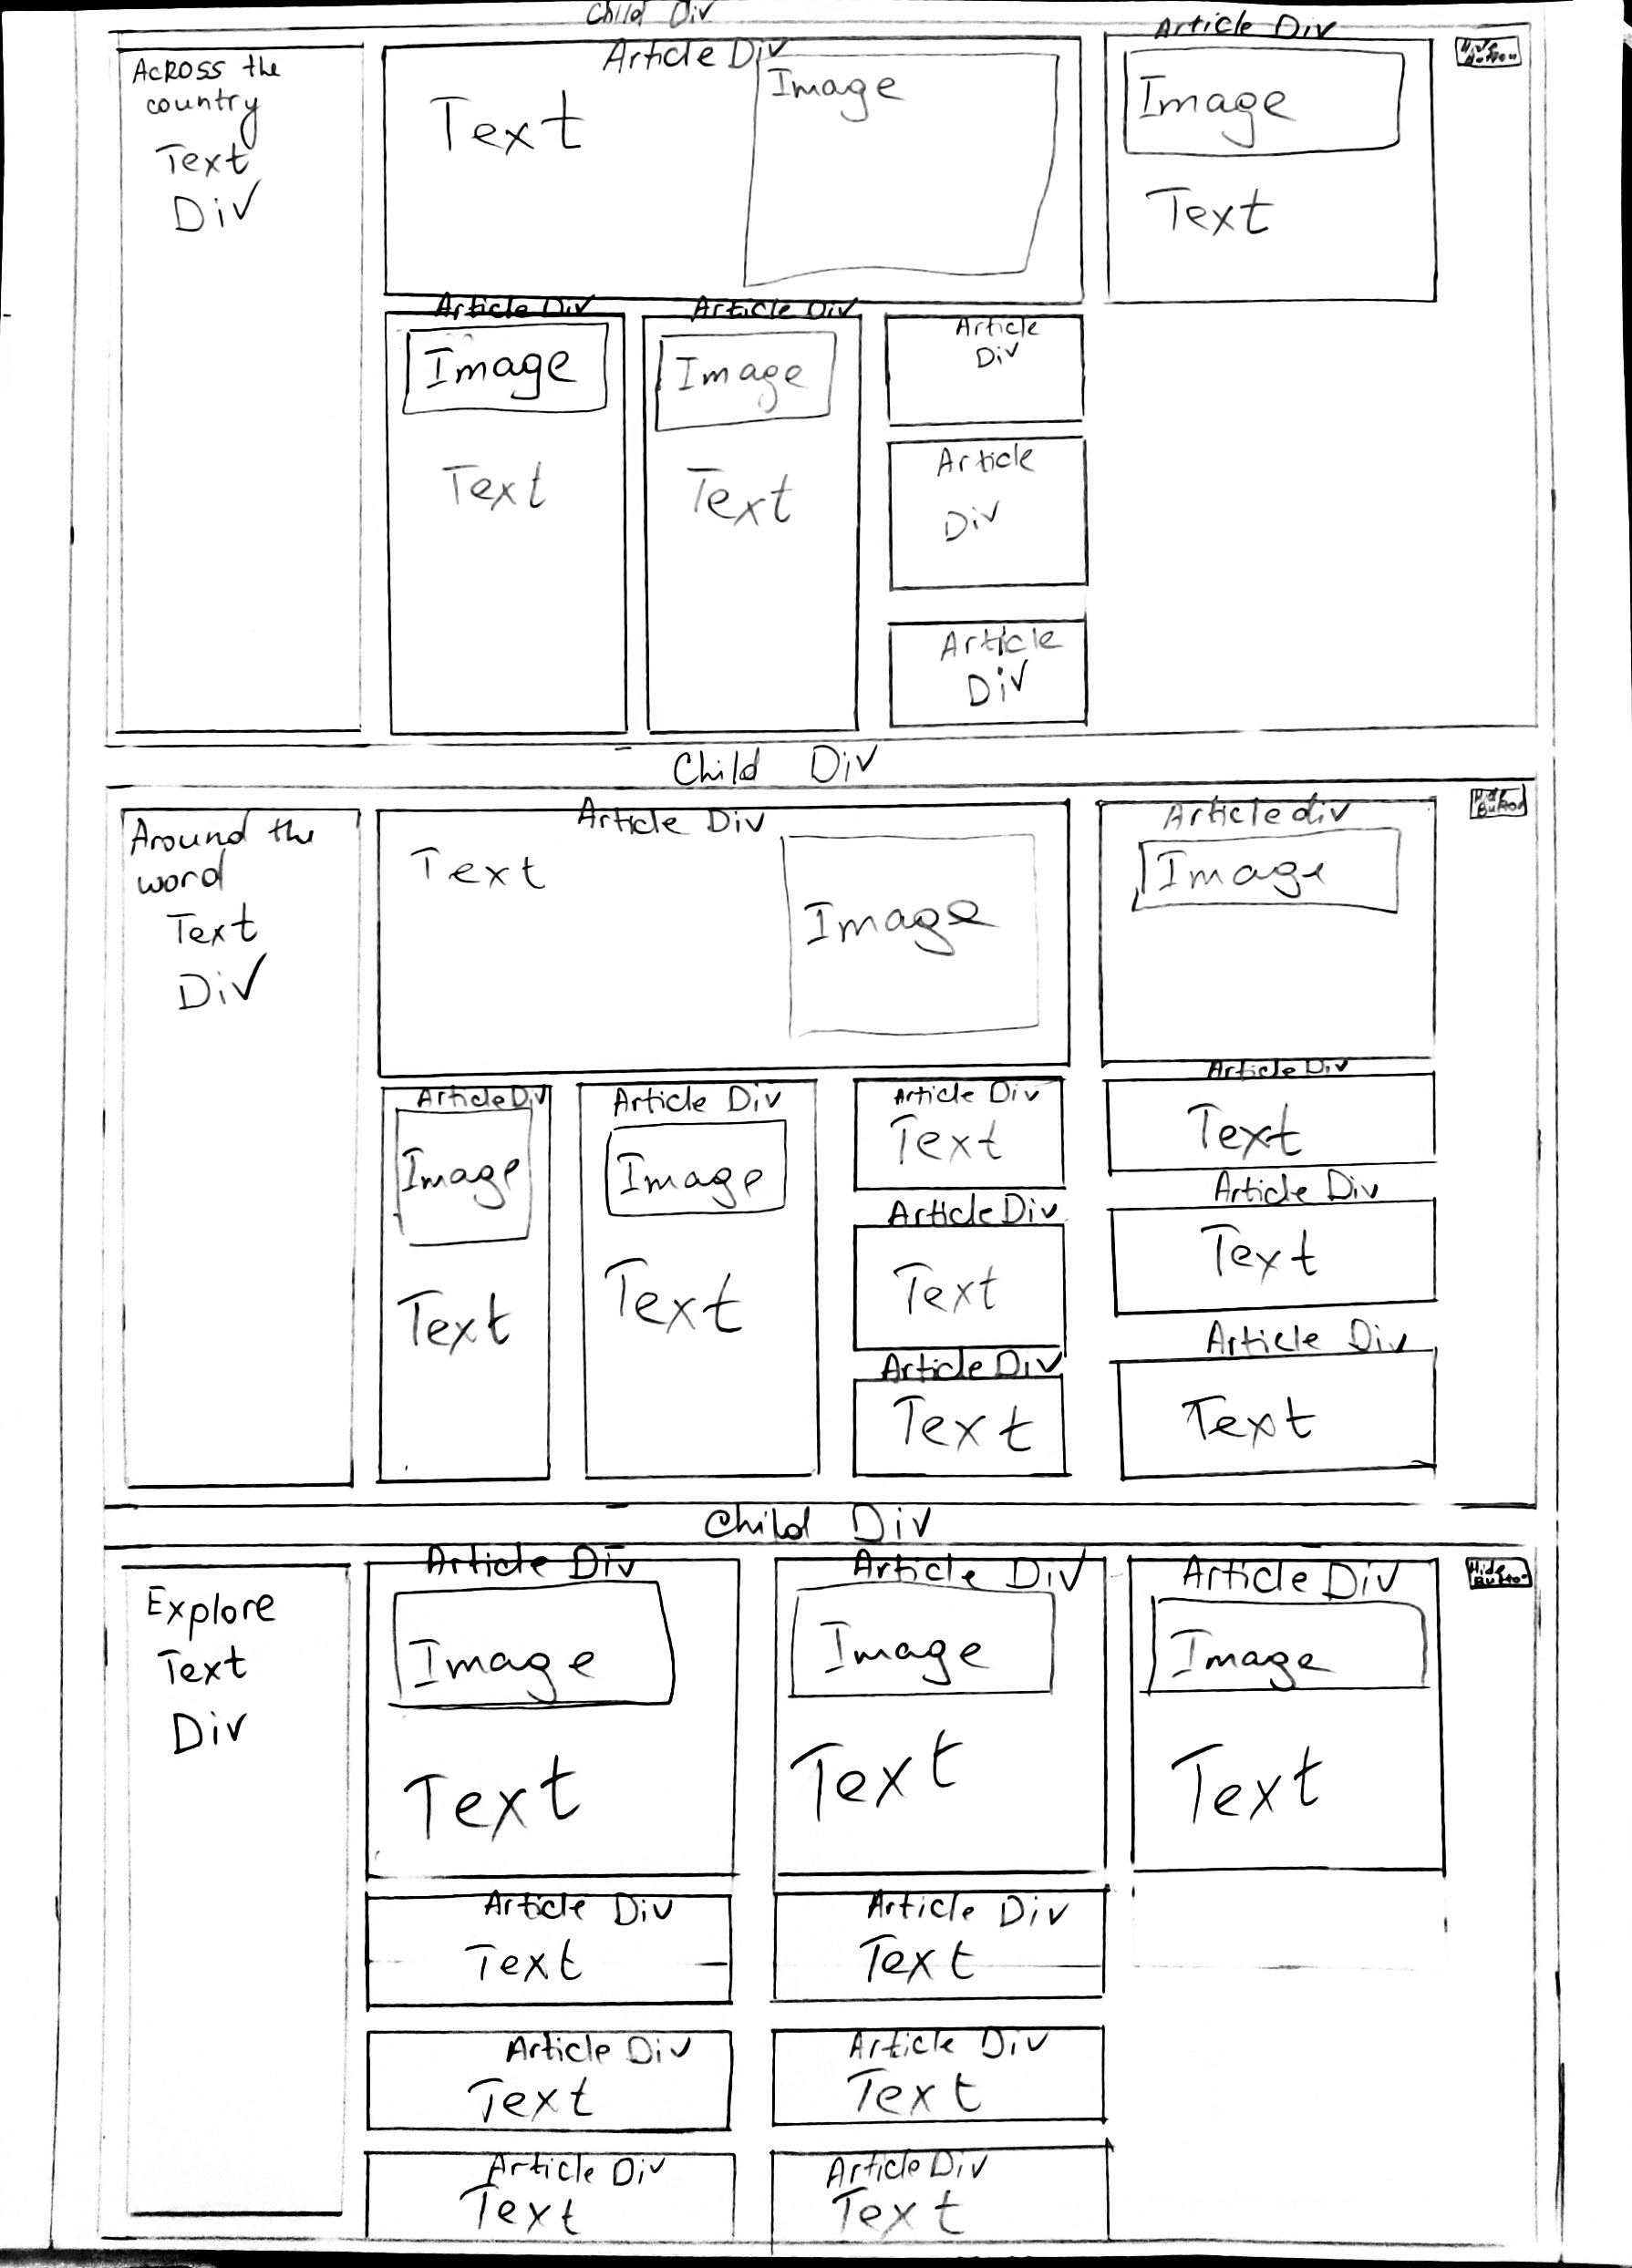 Child Div
Article Div
Hide Button
Across the
country
Text
Div
Article Div
Text
Image
Image
Text
Article Div
Image
Text
Article Div
Image
Text
Article
Div
Article
Div
Article
Div
Child Div
Hide
Button
Around the
word
Text
Div
Article Div
Text
Image
Article div
Image
Article Div
Image
Text
Article Div
Image
Text
Article Div
Text
Article Div
Text
Article Div
Text
Article Div
Text
Article Div
Text
Article Div
Text
Child Div
Hide
Button
Explore
Text
Div
Article Div
Image
Text
Article Div
Image
Text
Article Div
Image
Text
Article Div
Text
Article Div
Text
Article Div
Text
Article Div
Text
Article Div
Text
Article Div
Text